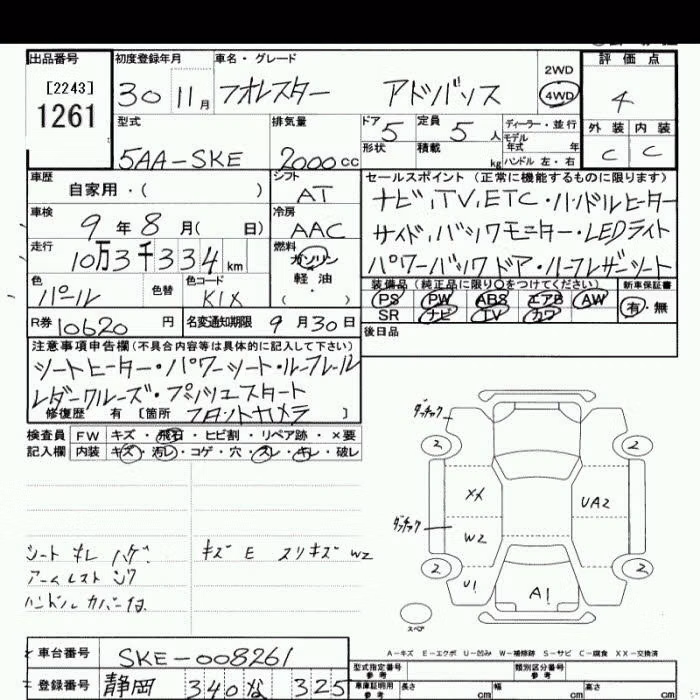 出品番号 初度登録年月 車名・グレード 2WD 評価点
[2243] 1261 30 11月 フォレスター アドバンス 4WD 4
型式 排気量 ドア 5 定員 5人 ディーラー・並行 外装 内装
5AA-SKE 2000cc 形状 積載 kg モデル年式 年 C C
ハンドル 左・右
車歴 シフト セールスポイント (正常に機能するものに限ります)
自家用・( ) AT ナビ,TV,ETC・ハンドルヒーター
車検 冷房 サイド,バックモニター・LEDライト
9年8月( 日) AAC パワーバックドア・ハーフレザーシート
走行 燃料
10万3千334km ガソリン
軽油
・( )
色 色替 色コード 装備品 (純正品に限り〇をつけてください) 新車保証書
パール K1X PS PW ABS エアB AW 有・無
SR ナビ TV カワ
R券 10620円 名変通知期限 9月30日 後日品
注意事項申告欄(不具合内容等は具体的に記入して下さい)
シートヒーター・パワーシート・ルーフレール
レダークルーズ・プッシュスタート
修復歴 有 [箇所 フロントカメラ ]
検査員 FW キズ・飛石・ヒビ割・リペア跡・×要
記入欄 内装 キズ・汚レ・コゲ・穴・スレ・キレ・破レ
ダッチャク
2 2
XX UA2
ダッチャク
W2
シート キレ ハゲ キズ E スリキズ W2
アームレスト
ハンドルカバー付
2 2
U1 A1
スペア
A-キズ E-エクボ U-凹み W-補修跡 S-サビ C-腐食 XX-交換済
車台番号 SKE-008261 型式指定番号 参考 類別区分番号 参考
登録番号 静岡 340 な 325 車庫証明用 参考 長さ cm 幅 cm 高さ cm